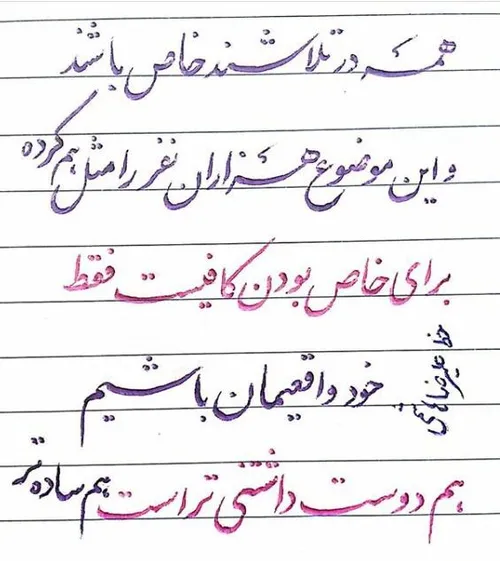 همه در تلاشند خاص باشند
و این موضوع هزاران نفر را مثل هم کرده
برای خاص بودن کافیست فقط
خود واقعیمان باشیم
هم دوست داشتنی تر است هم ساده تر
خط علیرضا